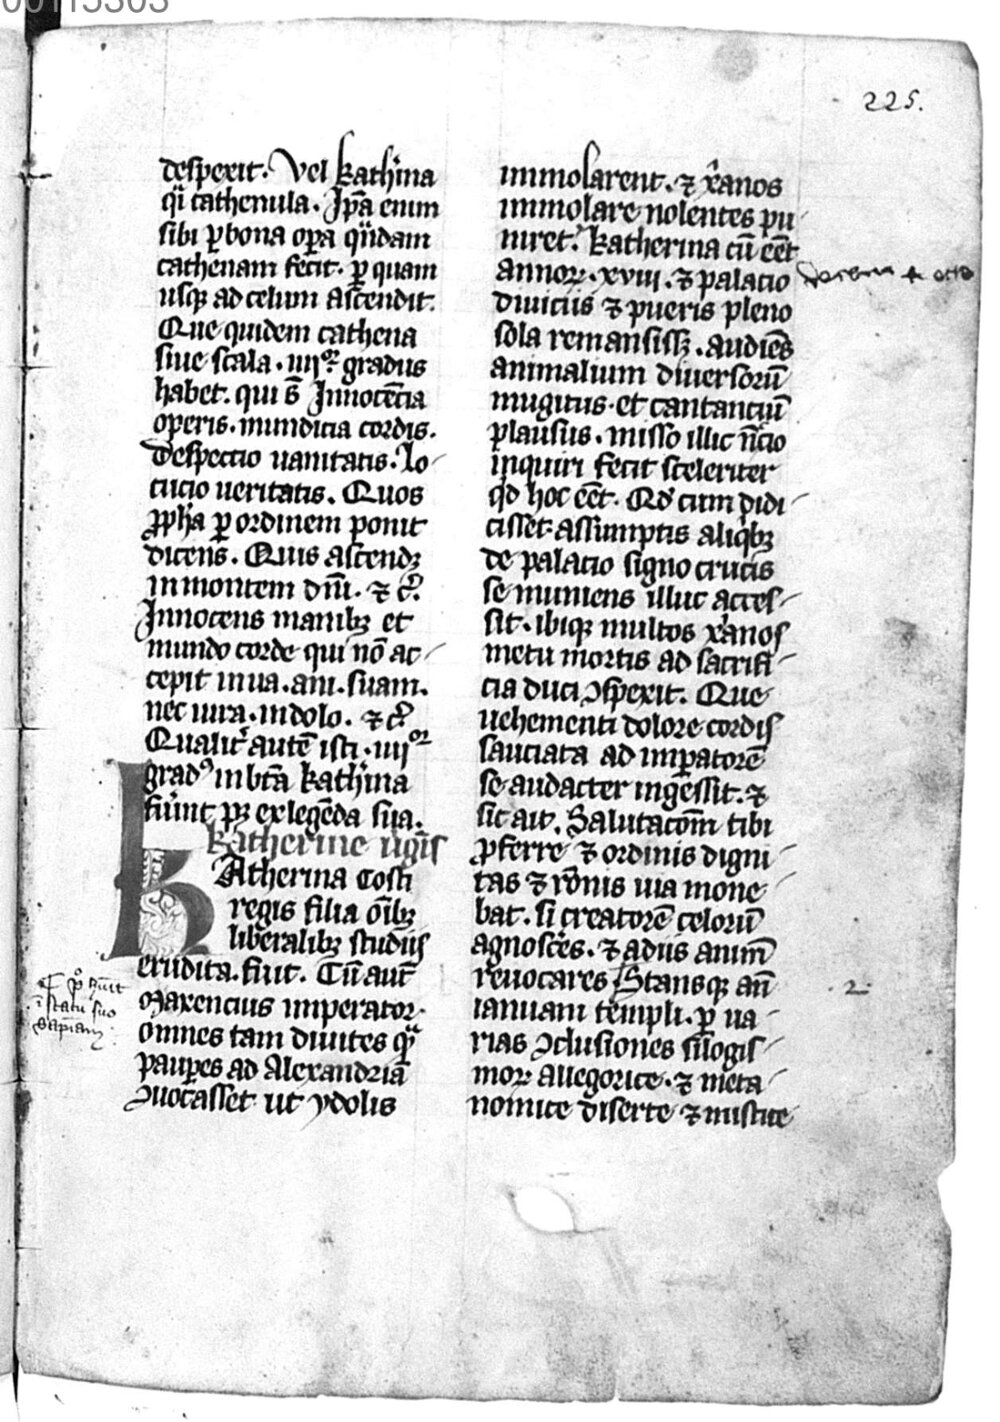 225.
despexit. Vel kath'ina
q'i cathenula. Ip̄a enim
sibi ꝑ bona oꝑa q̄ndam
cathenam fecit. ꝑ quam
usqꝫ ad celum ascendit.
Que quidem cathena
siue scala. iiijor gradus
habet. qui s̄t Innocēcia
operis. mundicia cordis.
despectio uanitatis. lo-
cucio ueritatis. Quos
ꝓph'a ꝑ ordinem ponit
dicens. Quis ascendꝫ
in montem dn̄i. ⁊ c̄.
Innocens manibꝫ et
mundo corde qui nō ac-
cepit in ua. ani. suam.
nec iura. in dolo. ⁊ c̄
Qualit' autē isti. iiijor
gradꝰ in btā kath'ina
fu'unt pꝫ ex legēda sua.
katherine u'gis
KAtherina Costi
regis filia oībꝫ
liberalibꝫ studijs
erudita. fuit. Cū aut̄
Maxencius imperator.
omnes tam diuites q̄ꝫ
pauꝑes ad Alexandriā
ꝯuocasset ut ydolis
immolarent. ⁊ xr̄anos
immolare nolentes pu-
niret. katherina cū eēt
annoꝝ. xviij. ⁊ palacio
diuicijs ⁊ pueris pleno
sola remansissꝫ. audiēs
animalium diuersorū
mugitus. et cantanciū
plausus. misso illic nūcio
inquiri fecit sceleriter
qd̄ hoc eēt. Qd' cum didi-
cisset. assumptis aliq'bꝫ
de palacio signo crucis
se muniens illuc acces-
sit. ibiqꝫ multos xr̄anos
metu mortis ad sacrifi-
cia duci ꝯspexit. Que
uehementi dolore cordis
sauciata ad imꝑatorē
se audacter ingessit. ⁊
sic ait. Salutacōm tibi
ꝓferre ⁊ ordinis digni-
tas ⁊ rōnis uia mone-
bat. si creatorē celorū
agnosces. ⁊ a dijs animū
reuocares Stansqꝫ an̄
ianuam templi. ꝑ ua-
rias ꝯclusiones silogis-
moꝝ allegorice. ⁊ meta-
nomice diserte ⁊ mistice
i statu suo
sapiam
2